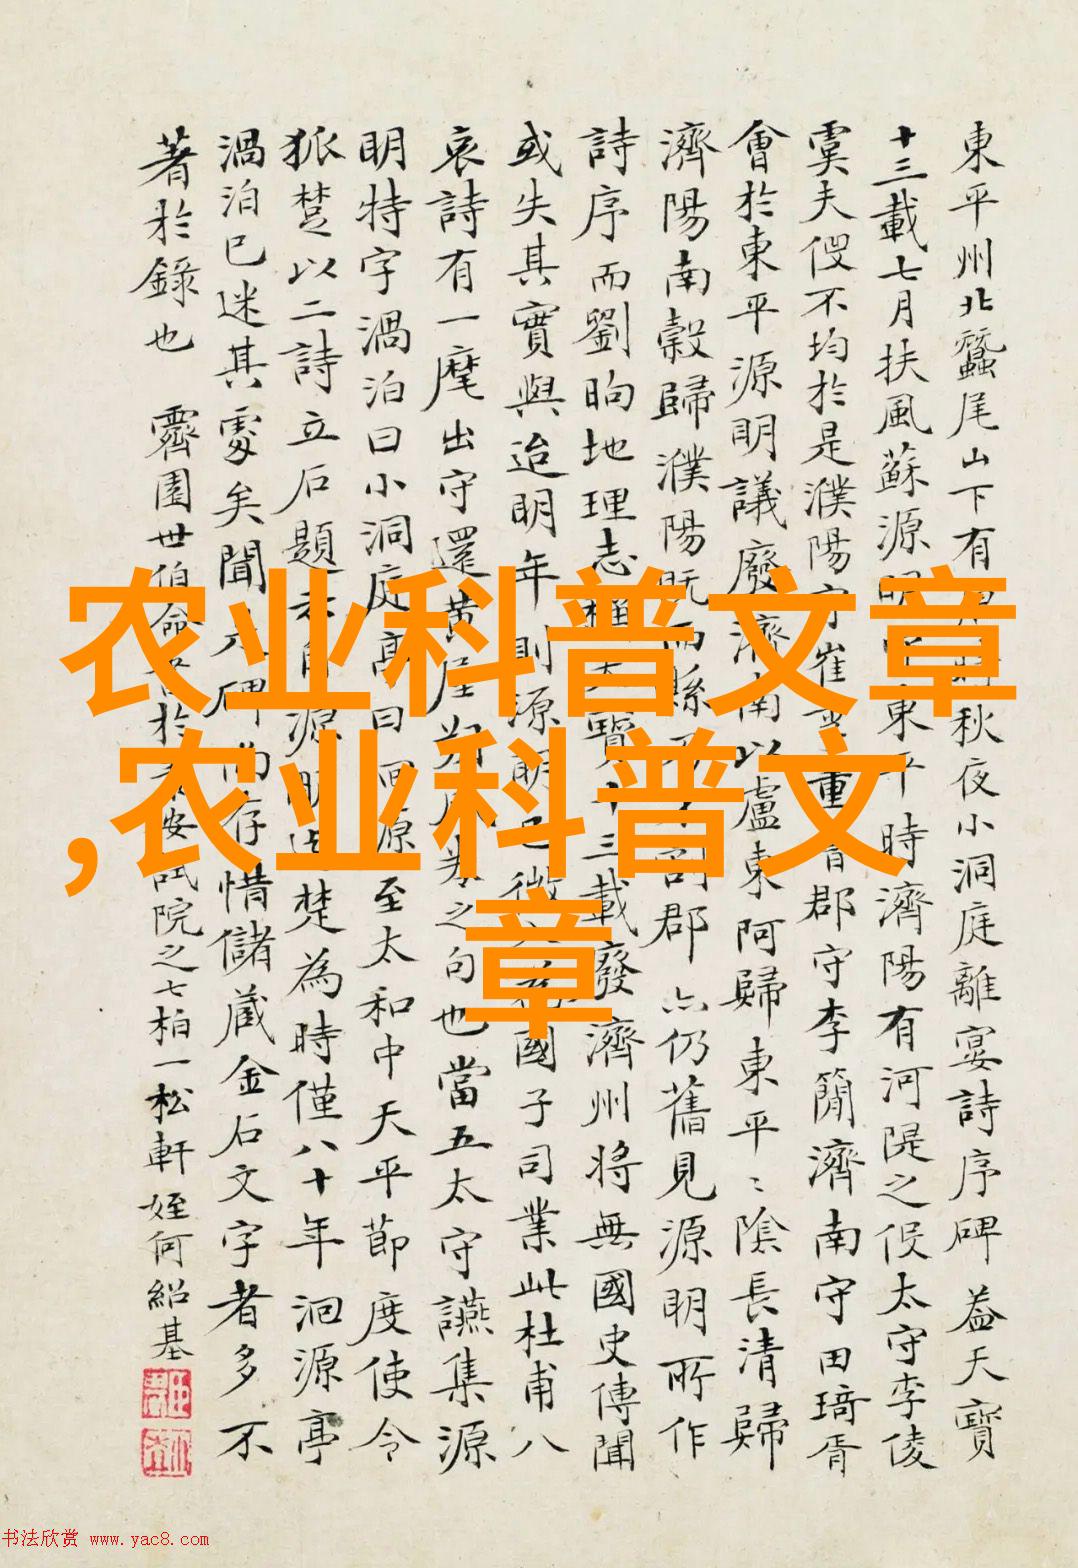 東平州北蠶尾山下有秋夜小洞庭離宴詩序碑葢天寶
十三載七月扶風蘇源明東平時濟陽有河隄之役太守李倰
虞夫役不均於是濮陽守崔重郡守李簡濟南守田琦胥
會於東平源明議廢濟南以盧東阿歸東平〻陰長清歸
濟陽南穀歸濮陽既而縣郡亦仍舊見源明所作
詩序而劉昫地理志稱天寶十三載廢濟州將無國史傳聞
或失其實與迨明年則源明已徵國子司業此杜甫八
哀詩有一麾出守還黃屋之句也當五太守讌集源
明特字渦泊曰小洞庭亭曰洄源至太和中天平節度使令
狐楚以二詩立石題源明楚為時僅八十年洄源亭
渦泊已迷其處矣聞碑尚存惜儲藏金石文字者多不
著於錄也 霽園世伯命書於安試院之七柏一松軒 姪何紹基
农业科普文章
,农业科普文
章
书法欣赏 www.yac8.com